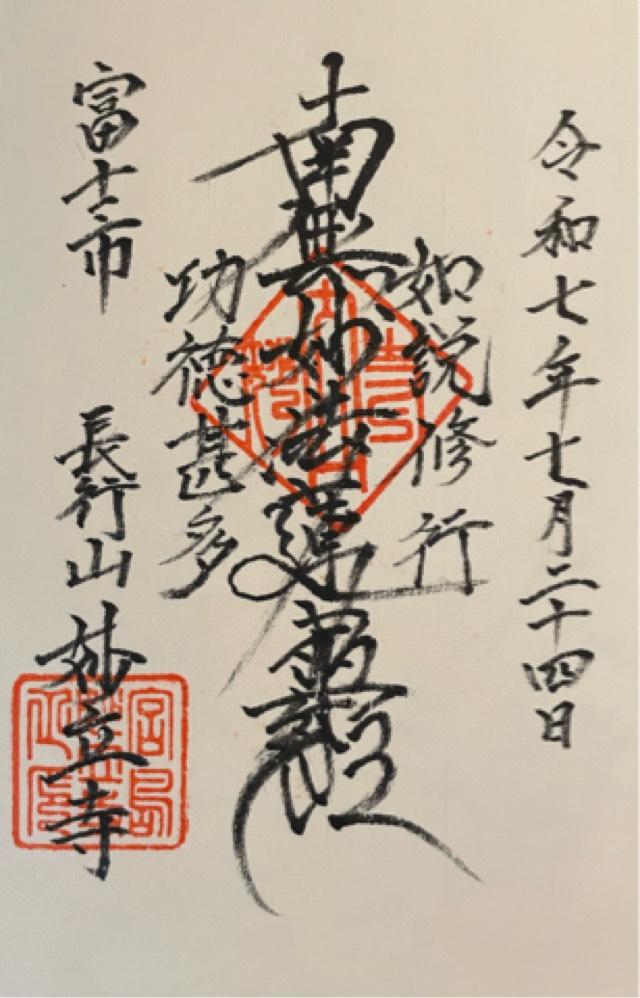 令和七年七月二十四日
如説修行
南無妙法蓮華経
功徳甚多
富士市 長行山 妙立寺